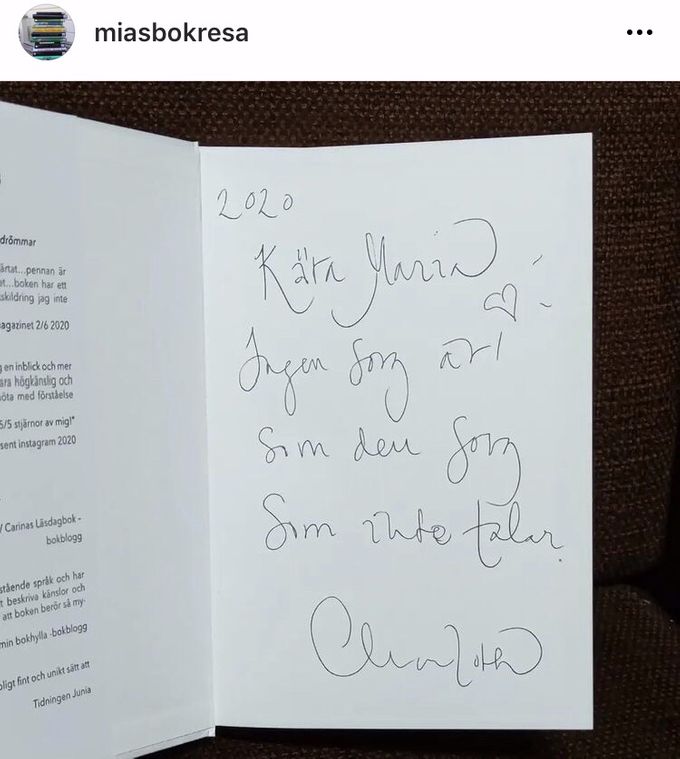 miasbokresa
drömmar
ärtat...pennan är
et...boken har ett
skildring jag inte
agazinet 2/6 2020
g en inblick och mer
ara högkänslig och
öta med förståelse
5/5 stjärnor av mig!"
sent instagram 2020
/ Carinas Läsdagbok -
bokblogg
stående språk och har
t beskriva känslor och
att boken berör så my-
min bokhylla -bokblogg
oligt fint och unikt sätt att
Tidningen Junia
2020
Kära Maria
Ingen sorg är
som den sorg
Som inte talar.
Charlotta